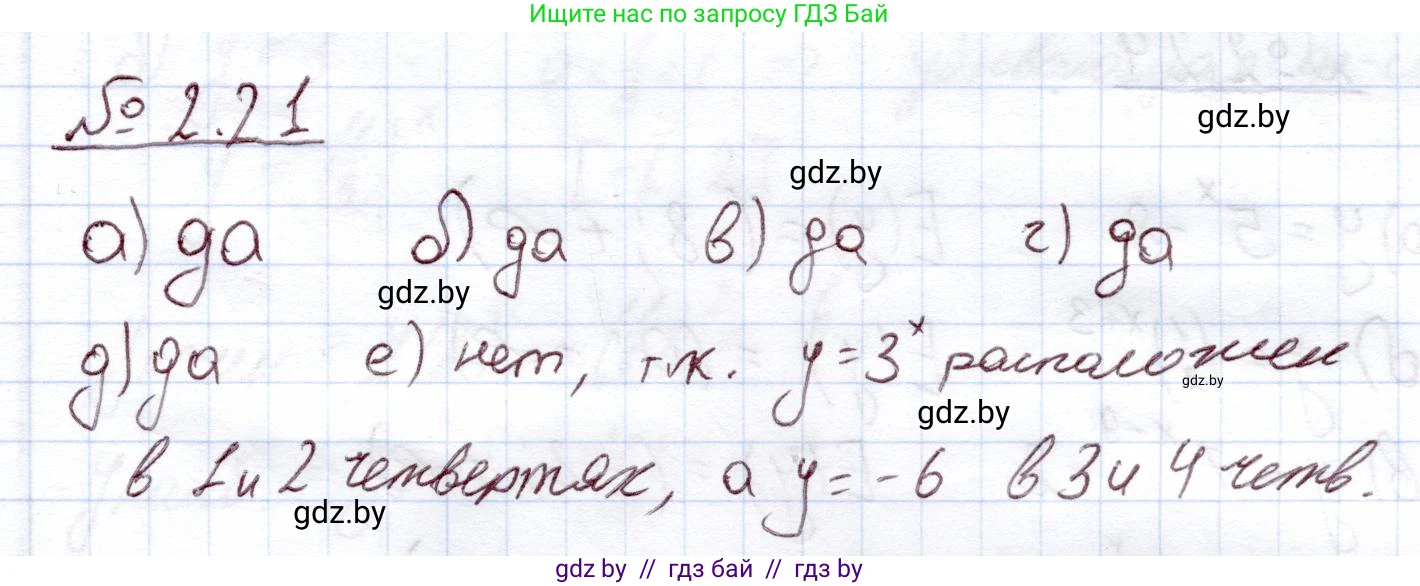 Ищите нас по запросу ГДЗ Бай
№ 2.21
gdz.by
gdz.by
а) да б) да в) да г) да
gdz.by
д) да е) нет, т.к. y = 3ˣ расположен
gdz.by
gdz.by
в 1 и 2 четвертях, а y = -6 в 3 и 4 четв.
gdz.by
gdz by // гдз бай // гдз by